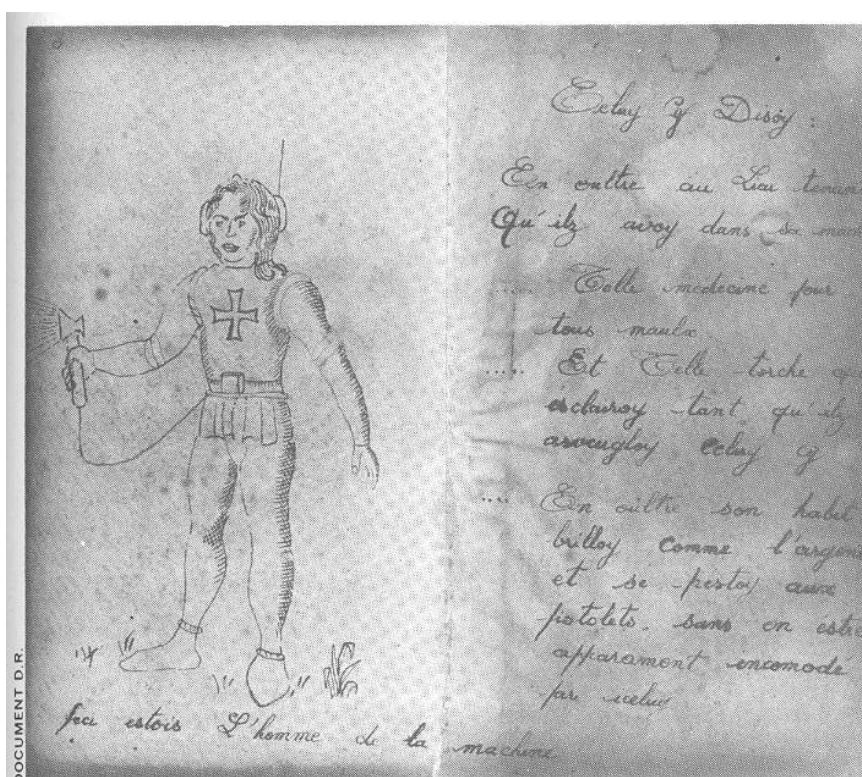 Celuy Cy Disoy :
En oultre au Lieu tenant
Qu'ilz avoy dans sa main
..... Telle medecine pour
tous maulx
..... Et Telle torche
esclairoy tant qu'ilz
aveugloy celuy cy
.... En oultre son habit
brilloy comme l'argent
et se prestoy aux
pistolets. sans en estre
apparament encomode
par iceluy
estois L'homme de la machine
DOCUMENT D.R.